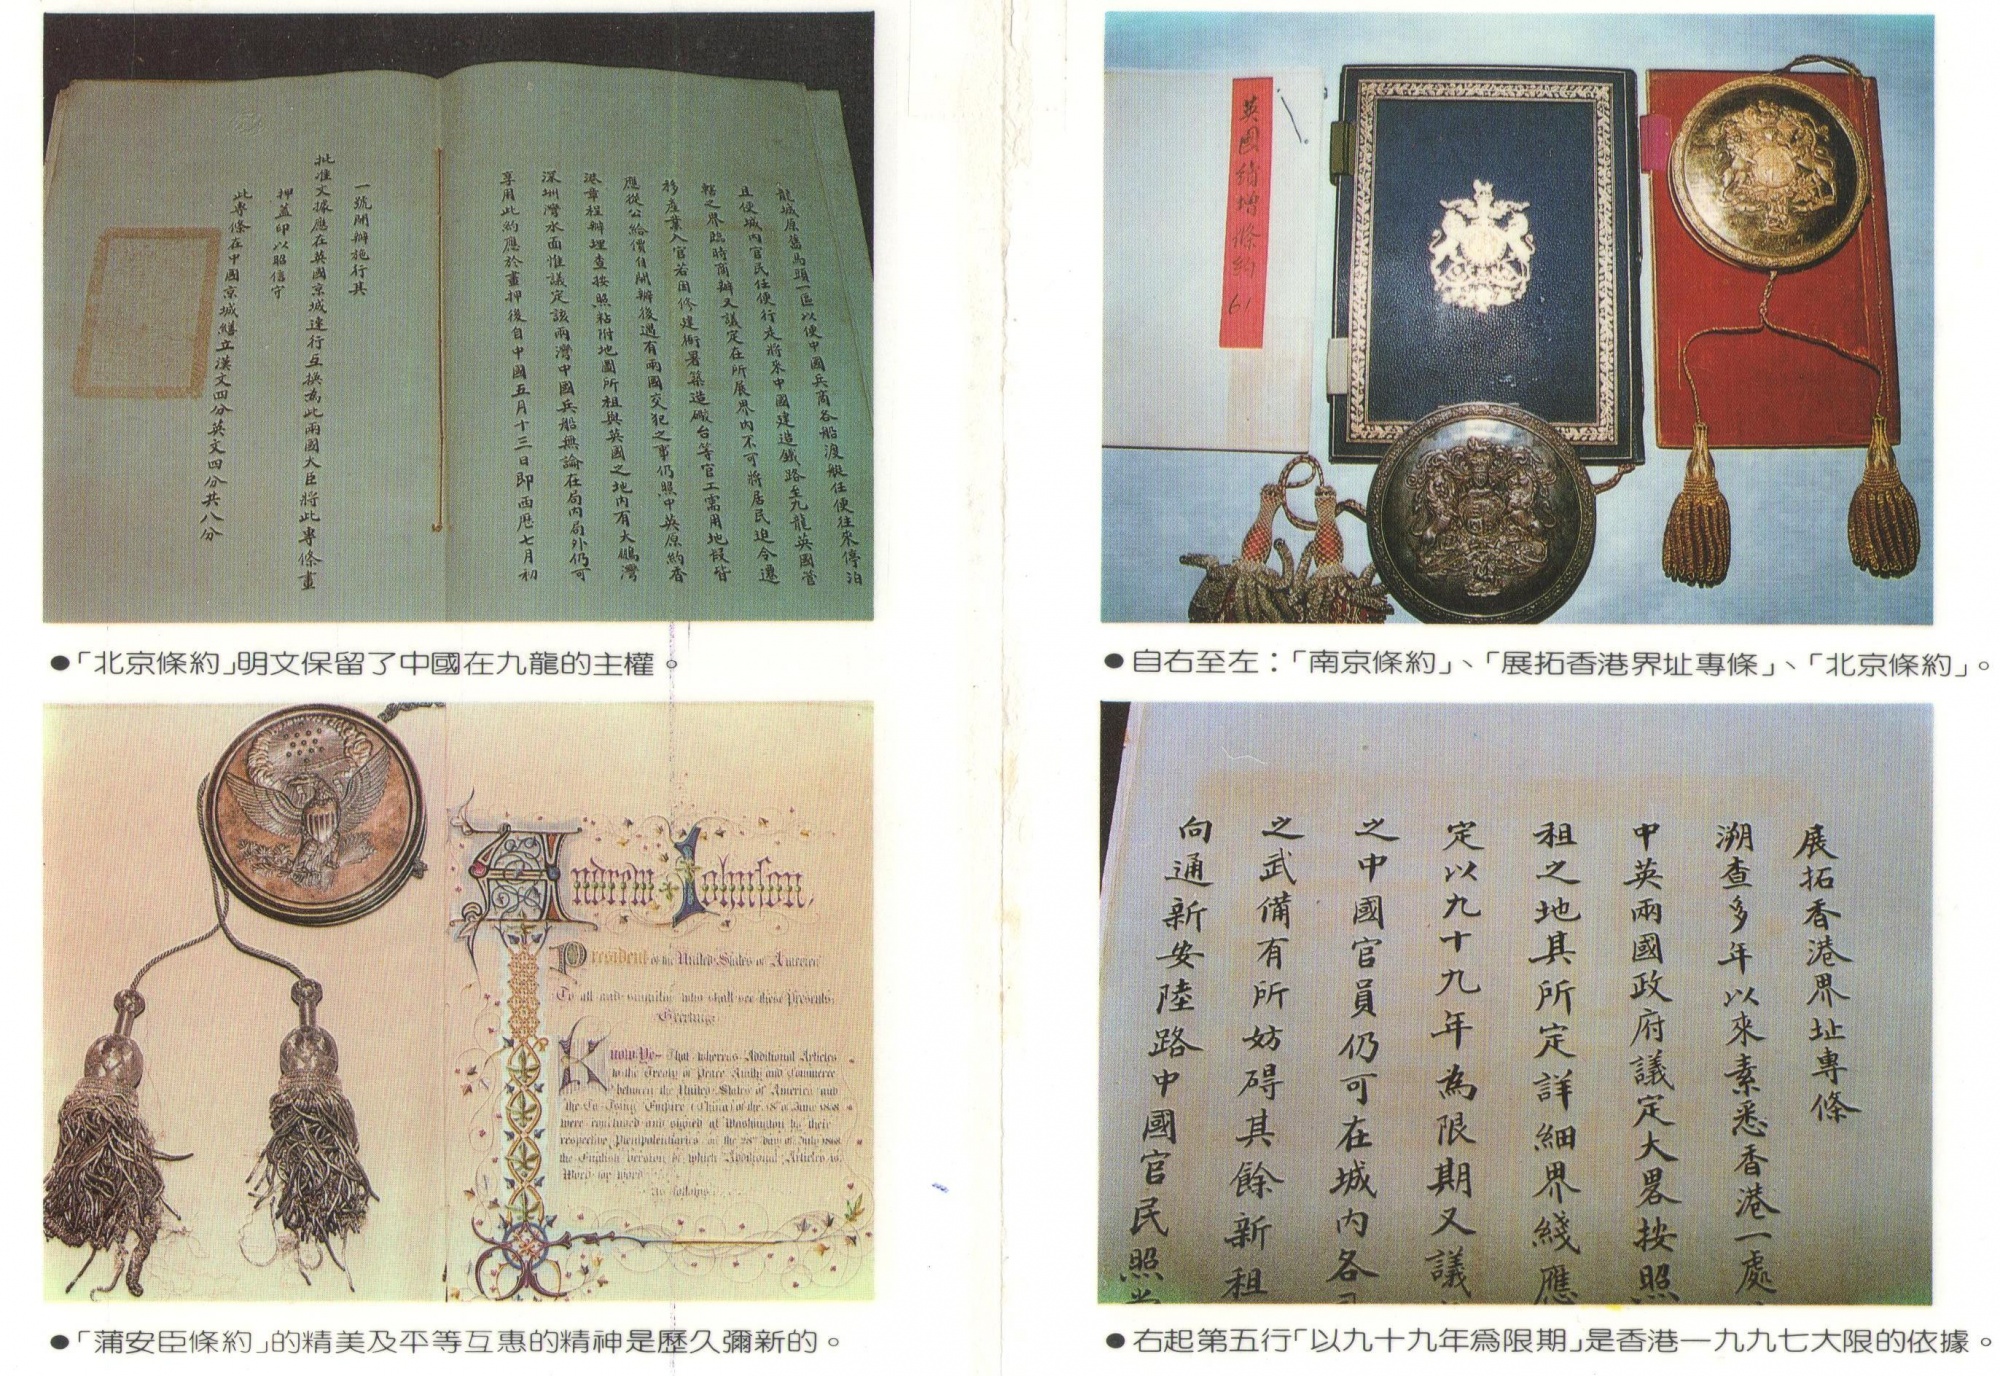 龍城原舊馬頭一區以便中國兵商各船渡艇任便往來停泊
且便城內官民任便行走將來中國建造鐵路至九龍英國管
轄之界臨時商辦又議定在所展界內不可將居民迫令遷
移產業入官若因修建衙署築造礮台等官工需用地段皆
應從公給價自開辦後遇有兩國交犯之事仍照中英原約香
港章程辦理查按照粘附地圖所租與英國之地內有大鵬灣
深圳灣水面惟議定該兩灣中國兵船無論在局內局外仍可
享用此約應於畫押後自中國五月十三日即西歷七月初
一號開辦施行其
批准文據應在英國京城速行互換為此兩國大臣將此專條畫
押蓋印以昭信守
此專條在中國京城繕立漢文四分英文四分共八分
●「北京條約」明文保留了中國在九龍的主權。
英國續增條約
61
●自右至左：「南京條約」、「展拓香港界址專條」、「北京條約」。
Andrew Johnson,
President of the United States of America
To all and singular who shall see these Presents,
Greeting
Know Ye That whereas Additional Articles
to the Treaty of Peace Amity and Commerce
between the United States of America and
the Ta Tsing Empire (China) of the 18th of June 1858
were concluded and signed at Washington by their
respective Plenipotentiaries on the 28th day of July 1868
the English version of which Additional Articles is
Word for word
as follows
●「蒲安臣條約」的精美及平等互惠的精神是歷久彌新的。
展拓香港界址專條
溯查多年以來素悉香港一處
中英兩國政府議定大畧按照
租之地其所定詳細界綫應
定以九十九年為限期又議
之中國官員仍可在城內各
之武備有所妨碍其餘新租
向通新安陸路中國官民照常
●右起第五行「以九十九年為限期」是香港一九九七大限的依據。